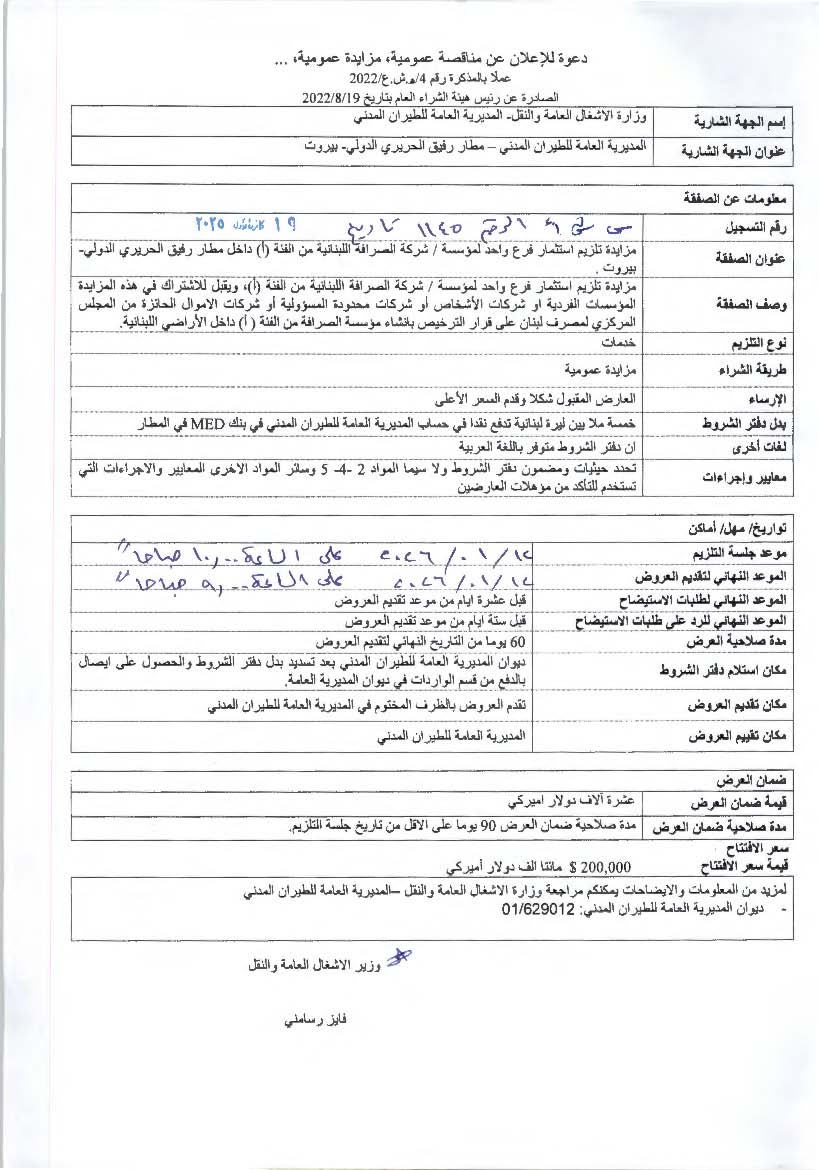 دعوة للإعلان عن مناقصة عمومية، مزايدة عمومية، ...
عملا بالمذكرة رقم 4/ه.ش.ع/2022
الصادرة عن رئيس هيئة الشراء العام بتاريخ 2022/8/19
إسم الجهة الشارية وزارة الاشغال العامة والنقل- المديرية العامة للطيران المدني
عنوان الجهة الشارية المديرية العامة للطيران المدني – مطار رفيق الحريري الدولي- بيروت
معلومات عن الصفقة
رقم التسجيل الرقم ١١٤٥ تاريخ ١٩ كانون الأول ٢٠٢٥
عنوان الصفقة مزايدة تلزيم استثمار فرع واحد لمؤسسة / شركة الصرافة اللبنانية من الفئة (أ) داخل مطار رفيق الحريري الدولي-
بيروت .
وصف الصفقة مزايدة تلزيم استثمار فرع واحد لمؤسسة / شركة الصرافة اللبنانية من الفئة (أ)، ويقبل للاشتراك في هذه المزايدة
المؤسسات الفردية او شركات الأشخاص أو شركات محدودة المسؤولية أو شركات الاموال الحائزة من المجلس
المركزي لمصرف لبنان على قرار الترخيص بانشاء مؤسسة الصرافة من الفئة ( أ) داخل الأراضي اللبنانية.
نوع التلزيم خدمات
طريقة الشراء مزايدة عمومية
الإرساء العارض المقبول شكلا وقدم السعر الأعلى
بدل دفتر الشروط خمسة ملايين ليرة لبنانية تدفع نقدا في حساب المديرية العامة للطيران المدني في بنك MED في المطار
لغات أخرى ان دفتر الشروط متوفر باللغة العربية
معايير وإجراءات تحدد حيثيات ومضمون دفتر الشروط ولا سيما المواد 2 -4- 5 وسائر المواد الاخرى المعايير والاجراءات التي
تستخدم للتأكد من مؤهلات العارضين
تواريخ/ مهل/ أماكن
موعد جلسة التلزيم ٢٠٢٦/٠١/١٤ على الساعة ١٠,٠٠ صباحا"
الموعد النهائي لتقديم العروض ٢٠٢٦/٠١/١٤ على الساعة ٩,٠٠ صباحا"
الموعد النهائي لطلبات الاستيضاح قبل عشرة ايام من موعد تقديم العروض
الموعد النهائي للرد على طلبات الاستيضاح قبل ستة ايام من موعد تقديم العروض
مدة صلاحية العرض 60 يوما من التاريخ النهائي لتقديم العروض
مكان استلام دفتر الشروط ديوان المديرية العامة للطيران المدني بعد تسديد بدل دفتر الشروط والحصول على ايصال
بالدفع من قسم الواردات في ديوان المديرية العامة.
مكان تقديم العروض تقدم العروض بالظرف المختوم في المديرية العامة للطيران المدني
مكان تقييم العروض المديرية العامة للطيران المدني
ضمان العرض
قيمة ضمان العرض عشرة آلاف دولار اميركي
مدة صلاحية ضمان العرض مدة صلاحية ضمان العرض 90 يوما على الاقل من تاريخ جلسة التلزيم.
سعر الافتتاح
قيمة سعر الافتتاح 200,000 $ مائتا الف دولار أميركي
لمزيد من المعلومات والايضاحات يمكنكم مراجعة وزارة الاشغال العامة والنقل –المديرية العامة للطيران المدني
- ديوان المديرية العامة للطيران المدني: 01/629012
وزير الاشغال العامة والنقل
فايز رسامني